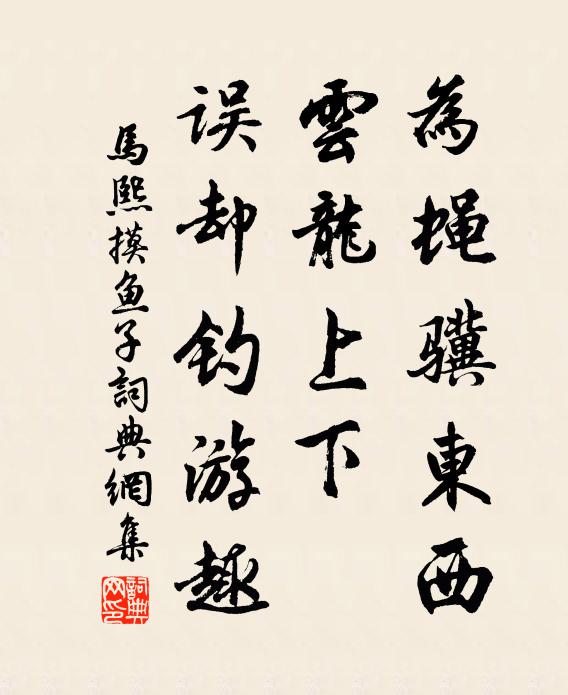 為蝇骥東西
雲龍上下
误却钓游趣
馬熙摸魚子詞典網集
詞典
网印